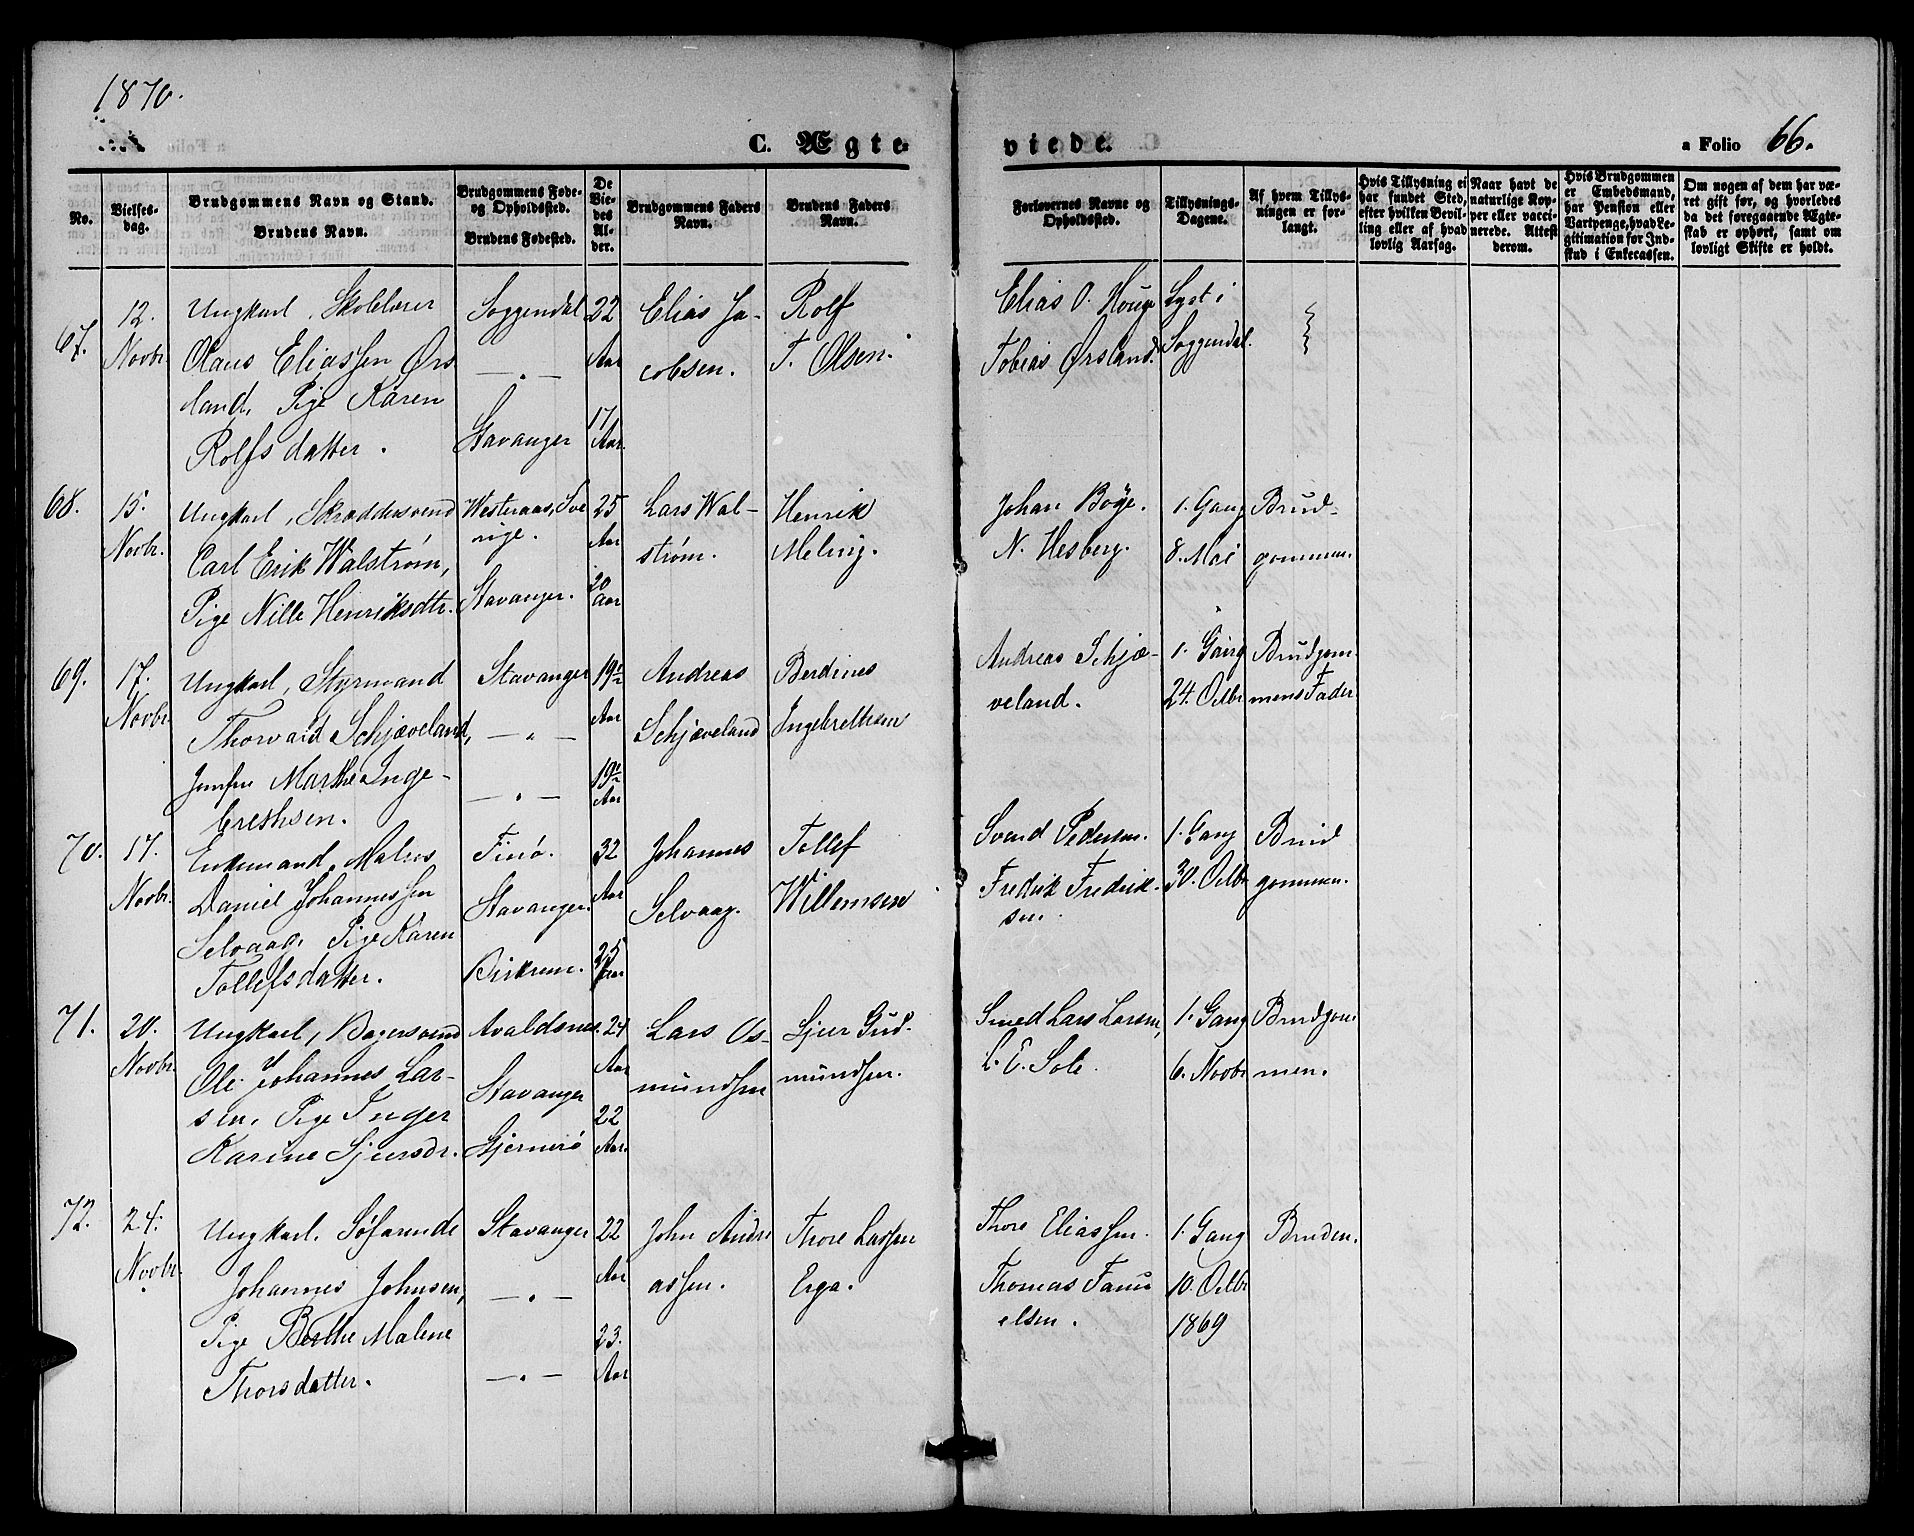 1870.
C. Ægte-
viede.
a Folio 66.
No.
Vielses-
dag.
Brudgommens Navn og Stand.
Brudens Navn.
Brudgommens Føde-
og Opholdssted.
Brudens Fødested.
De
Vie-
des
Al-
der.
Brudgommens Faders
Navn.
Brudens Faders
Navn.
Forlovernes Navne og
Opholdssted.
Tillysnings-
Dagene.
Af hvem Tillys-
ningen er for-
langt.
Hvis Tillysning ei
har fundet Sted,
efter hvilken Bevil-
ling eller af hvad
lovlig Aarsag.
Naar havt de
naturlige Kop-
per eller vacci-
nerede. Attest
derom.
Hvis Brudgommen
er Embedsmand,
har Pension eller
Vartpenge, hvad Le-
gitimation for Ind-
skud i Enkecassen.
Om nogen af dem har væ-
ret gift før, og hvorledes
da det foregaaende Ægte-
skab er ophørt, samt om
lovligt Skifte er holdt.
67.
12.
Novbr.
Ungkarl, Skolelærer
Olaus Eliassen Ørs
land, Pige Karen
Rolfsdatter.
Soggendal
— " —
Stavanger
22
Aar
17
Aar.
Elias Ja-
cobsen.
Rolf
T. Olsen.
Elias O. Houge
Tobias Ørsland.
Lyst i
Soggendal.
68.
15.
Novbr.
Ungkarl, Skræddersvend
Carl Erik Walstrøm,
Pige Nille Henriksdtr.
Westeraas, Sve
rige.
Stavanger.
25
Aar
20
Aar
Lars Wal-
strøm.
Henrik
Meling.
Johan Bøye.
N. Hesberg.
1. Gang
8. Mai
Brud-
gommen.
69.
17.
Novbr.
Ungkarl, Styrmand
Thorvald Schjæveland,
Jomfru Marthe Inge-
brethsen.
Stavanger
— " —
— " —
19½
Aar
19½
Aar
Andreas
Schjæveland
Berdines
Ingebrethsen
Andreas Schjæ-
veland.
1. Gang
24. Octbr
Brudgom-
mens Fader
70.
17.
Novbr.
Enkemand, Matros
Daniel Johannessen
Selvaag, Pige Karen
Tollefsdatter.
Finø.
Stavanger.
Birkrem.
32
Aar
25
Aar
Johannes
Selvaag.
Tollef
Willemsen
Svend Pedersen.
Fredrik Fredrik-
sen.
1. Gang
30. Octbr
Brud
gommen.
71.
20.
Novbr.
Ungkarl, Bagersvend
Ole Johannes Lar-
sen, Pige Inger
Karine Sjursdr.
Avaldsnes
Stavanger
Sjernerø
24
Aar
22
Aar.
Lars Os-
mundsen
Sjur Gud-
mundsen.
Smed Lars Larsen,
L. E. Sole.
1. Gang
6. Novbr
Brudgom
men.
72.
24.
Novbr.
Ungkarl. Søfarende
Johannes Johnsen,
Pige Berthe Malene
Thorsdatter.
Stavanger
— " —
— " —
22
Aar
23.
Aar
John Andre
assen.
Thore Larsen
Erga.
Thore Eliassen.
Thomas Samu
elsen.
1. Gang
10. Octbr
1869
Bruden.